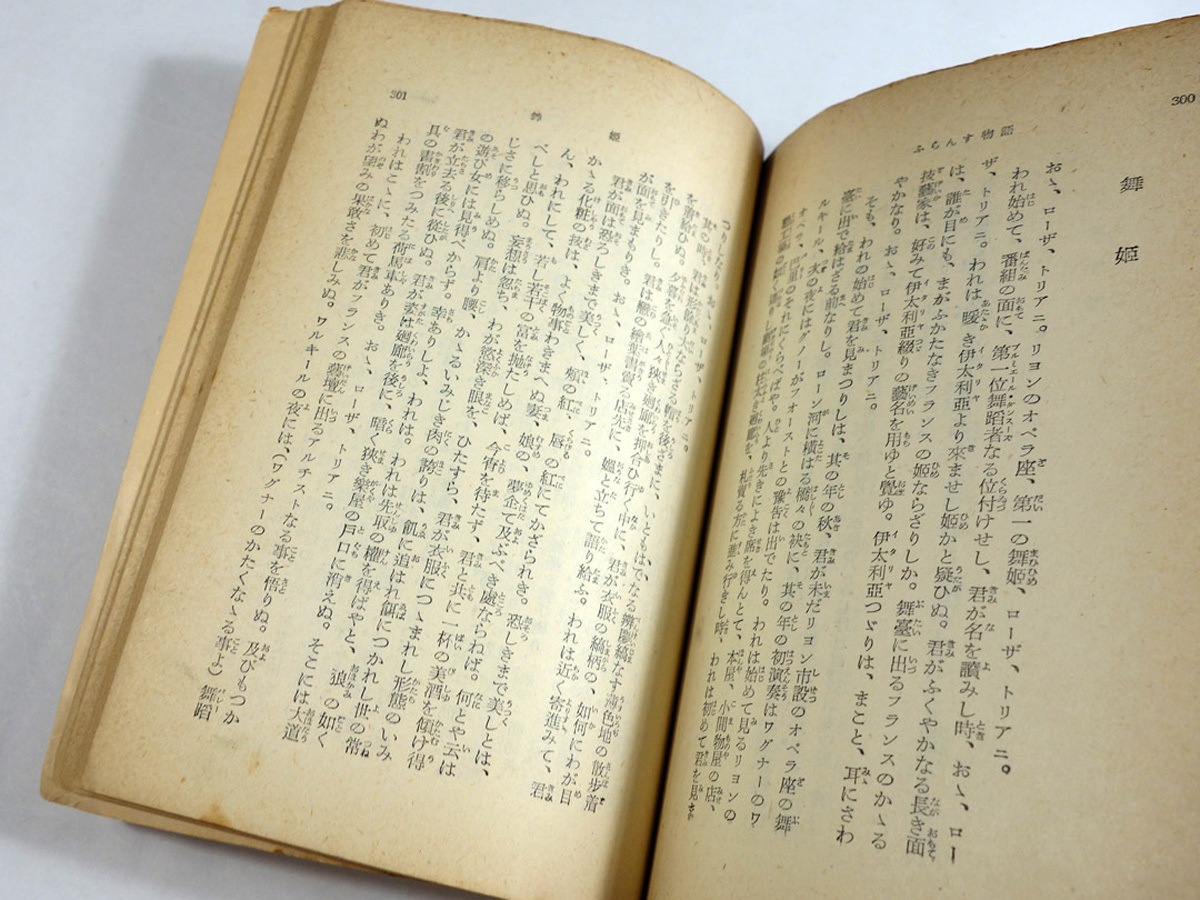 300
ふらんす物語
舞姫
おゝ、ローザ、トリアニ。リヨンのオペラ座、第一の舞姫、ローザ、トリアニ。
われ始めて、番組の面に、第一位舞蹈者なる位付けせし、君が名を讀みし時、おゝ、ロー
ザ、トリアニ。われは暖き伊太利亞より來ませし姫かと疑ひぬ。君がふくやかなる長き面
は、誰が目にも、まがふかたなきフランスの姫ならざりしか。舞臺に出るフランスのかゝる
技藝家は、好みて伊太利亞綴りの藝名を用ゆと覺ゆ。伊太利亞つゞりは、まこと、耳にさわ
やかなり。おゝ、ローザ、トリアニ。
そも、われの始めて君を見まつりしは、其の年の秋、君が未だリヨン市設のオペラ座の舞
臺に出で給はざる前なりし。ローン河に横はる橋々の袂に、其の年の初演奏はワグナーのワ
ルキール、次の夜にはグノーがフォーストとの豫吿は出でたり。われは始めて見るリヨンの
オペラ、巴里のそれにくらべばや。人より先きによき席を得んとて、本屋、小間物屋の店、
札賣る方に進み行きし時、われは初めて君を見ま
つりしなり。おゝ、ローザ、トリアニ。
其の時、君は形餘り大ならざる帽を後ざまに、いともはでなる辨慶縞なす薄色地の散步着
を着給ひぬ。夕餐を急ぐ人々の狹き廻廊を押合ひ行く中に、君が衣服の縞柄の、如何にわが目
を引きたりし。君は櫃の繪葉書賣る店先に、嫗と立ちて語り給ふ。われは近く寄進みて、君
が面を見まもりき。おゝ、ローザ、トリアニ。
君が面は恐ろしきまで美しく、頰の紅、唇の紅にてかざられき。恐しきまで美しとは、
かゝる化粧の技は、よく物事わきまへぬ妻、娘の、夢企て及ぶべき處ならねば。何とや云は
ん、われにして、若し若干の富を抛たしめば、今宵を待たず、君と共に一杯の美酒を傾け得
べしと思ひぬ。妄想は忽ち、わが慾深き眼を、ひたすら、君が衣服につゝまれし形態のいみ
じさに移らしめぬ。肩より腰、かゝるいみじき肉の誇りは、飢に追はれ餌につかれし世の常
の遊び女には見得べからず。幸ありしよ、われは。われは先取の權を得ばやと、狼の如く
君が立去る後に從ひぬ。君が姿は廻廊を後に、暗く狹き樂屋の戸口に消えぬ。そこには大道
具の書割をつみたる荷馬車ありき。おゝ、ローザ、トリアニ。
われはこゝに、初めて君がフランスの藝壇に出るアルチストなる事を悟りぬ。及びもつか
ぬわが望みの果敢さを悲しみぬ。ワルキールの夜には、(ワグナーのかたくなゝる事よ)舞蹈
301